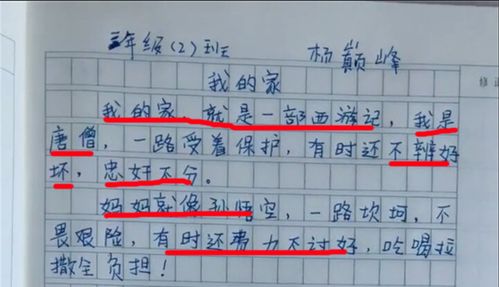 三年级(2)班 杨巅峰
我的家
我的家就是一部西游记，我是
唐僧，一路受着保护，有时还不辨好
坏，忠奸不分。
妈妈就像孙悟空，一路坎坷，不
畏艰险，有时还费力不讨好，吃喝拉
撒全负担！